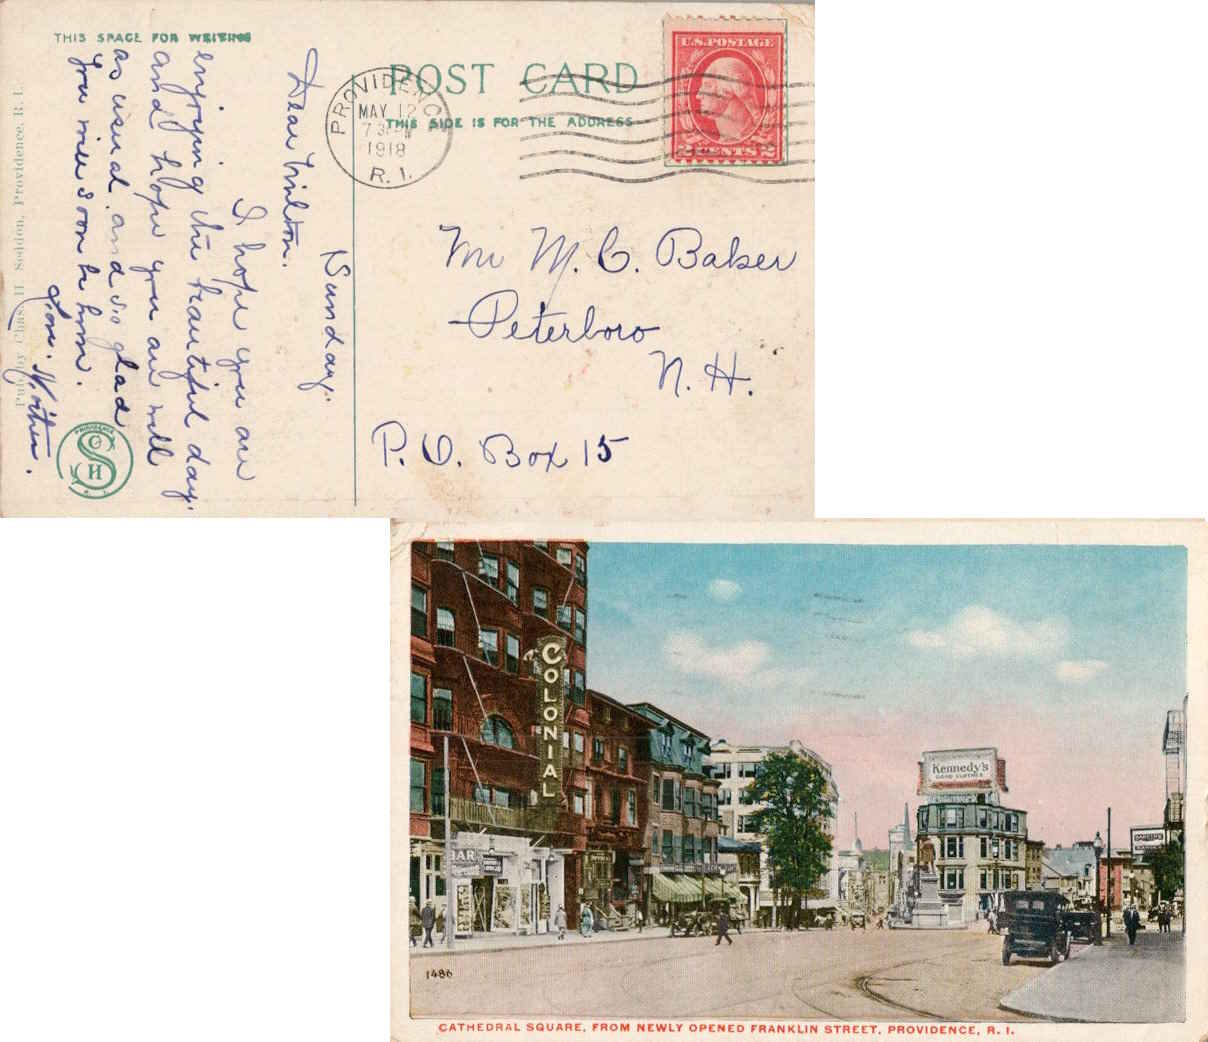 THIS SPACE FOR WRITING
POST CARD
THIS SIDE IS FOR THE ADDRESS
U.S. POSTAGE
2 CENTS 2
PROVIDENCE
MAY 12
7 30 PM
1918
R. I.
Sunday.
Dear Milton.
I hope you are
enjoying the beautiful day.
and hope you are well
as usual. and so glad
you will soon be home.
Mr M. C. Baker
Peterboro
N. H.
P. O. Box 15
Pub. by Chas. H. Seddon, Providence, R. I.
PROVIDENCE
R. I.
COLONIAL
BAR
Kennedy's
GOOD CLOTHES
1486
CATHEDRAL SQUARE, FROM NEWLY OPENED FRANKLIN STREET, PROVIDENCE, R. I.